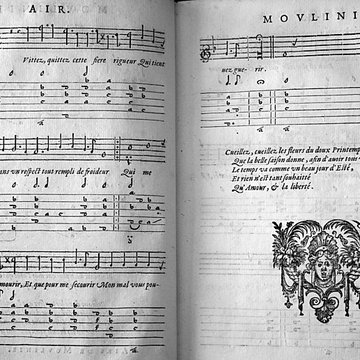 AIR.
Vittez, quittez cette fiere rigueur Qui tient
ans un respect tout rempli de froideur Qui me
mourir, Et que pour me secourir Mon mal vous pou-
MOVLINI
nez gue- rir.
Cueillez, cueillez les fleurs du doux Printemps
Que la belle saison donne, afin d'avoir tout
Le temps va comme un beau jour d'Esté,
Et rien n'est tant souhaitté
Qu'Amour, & la liberté.